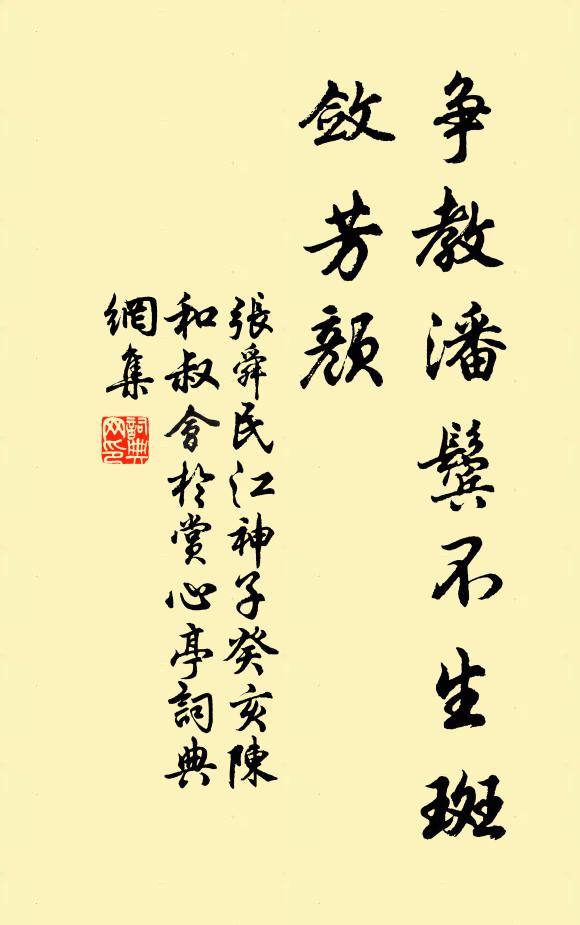 争教潘鬓不生斑
敛芳颜
張舜民江神子癸亥陳
和叔會於賞心亭詞典
網集
詞典
网印